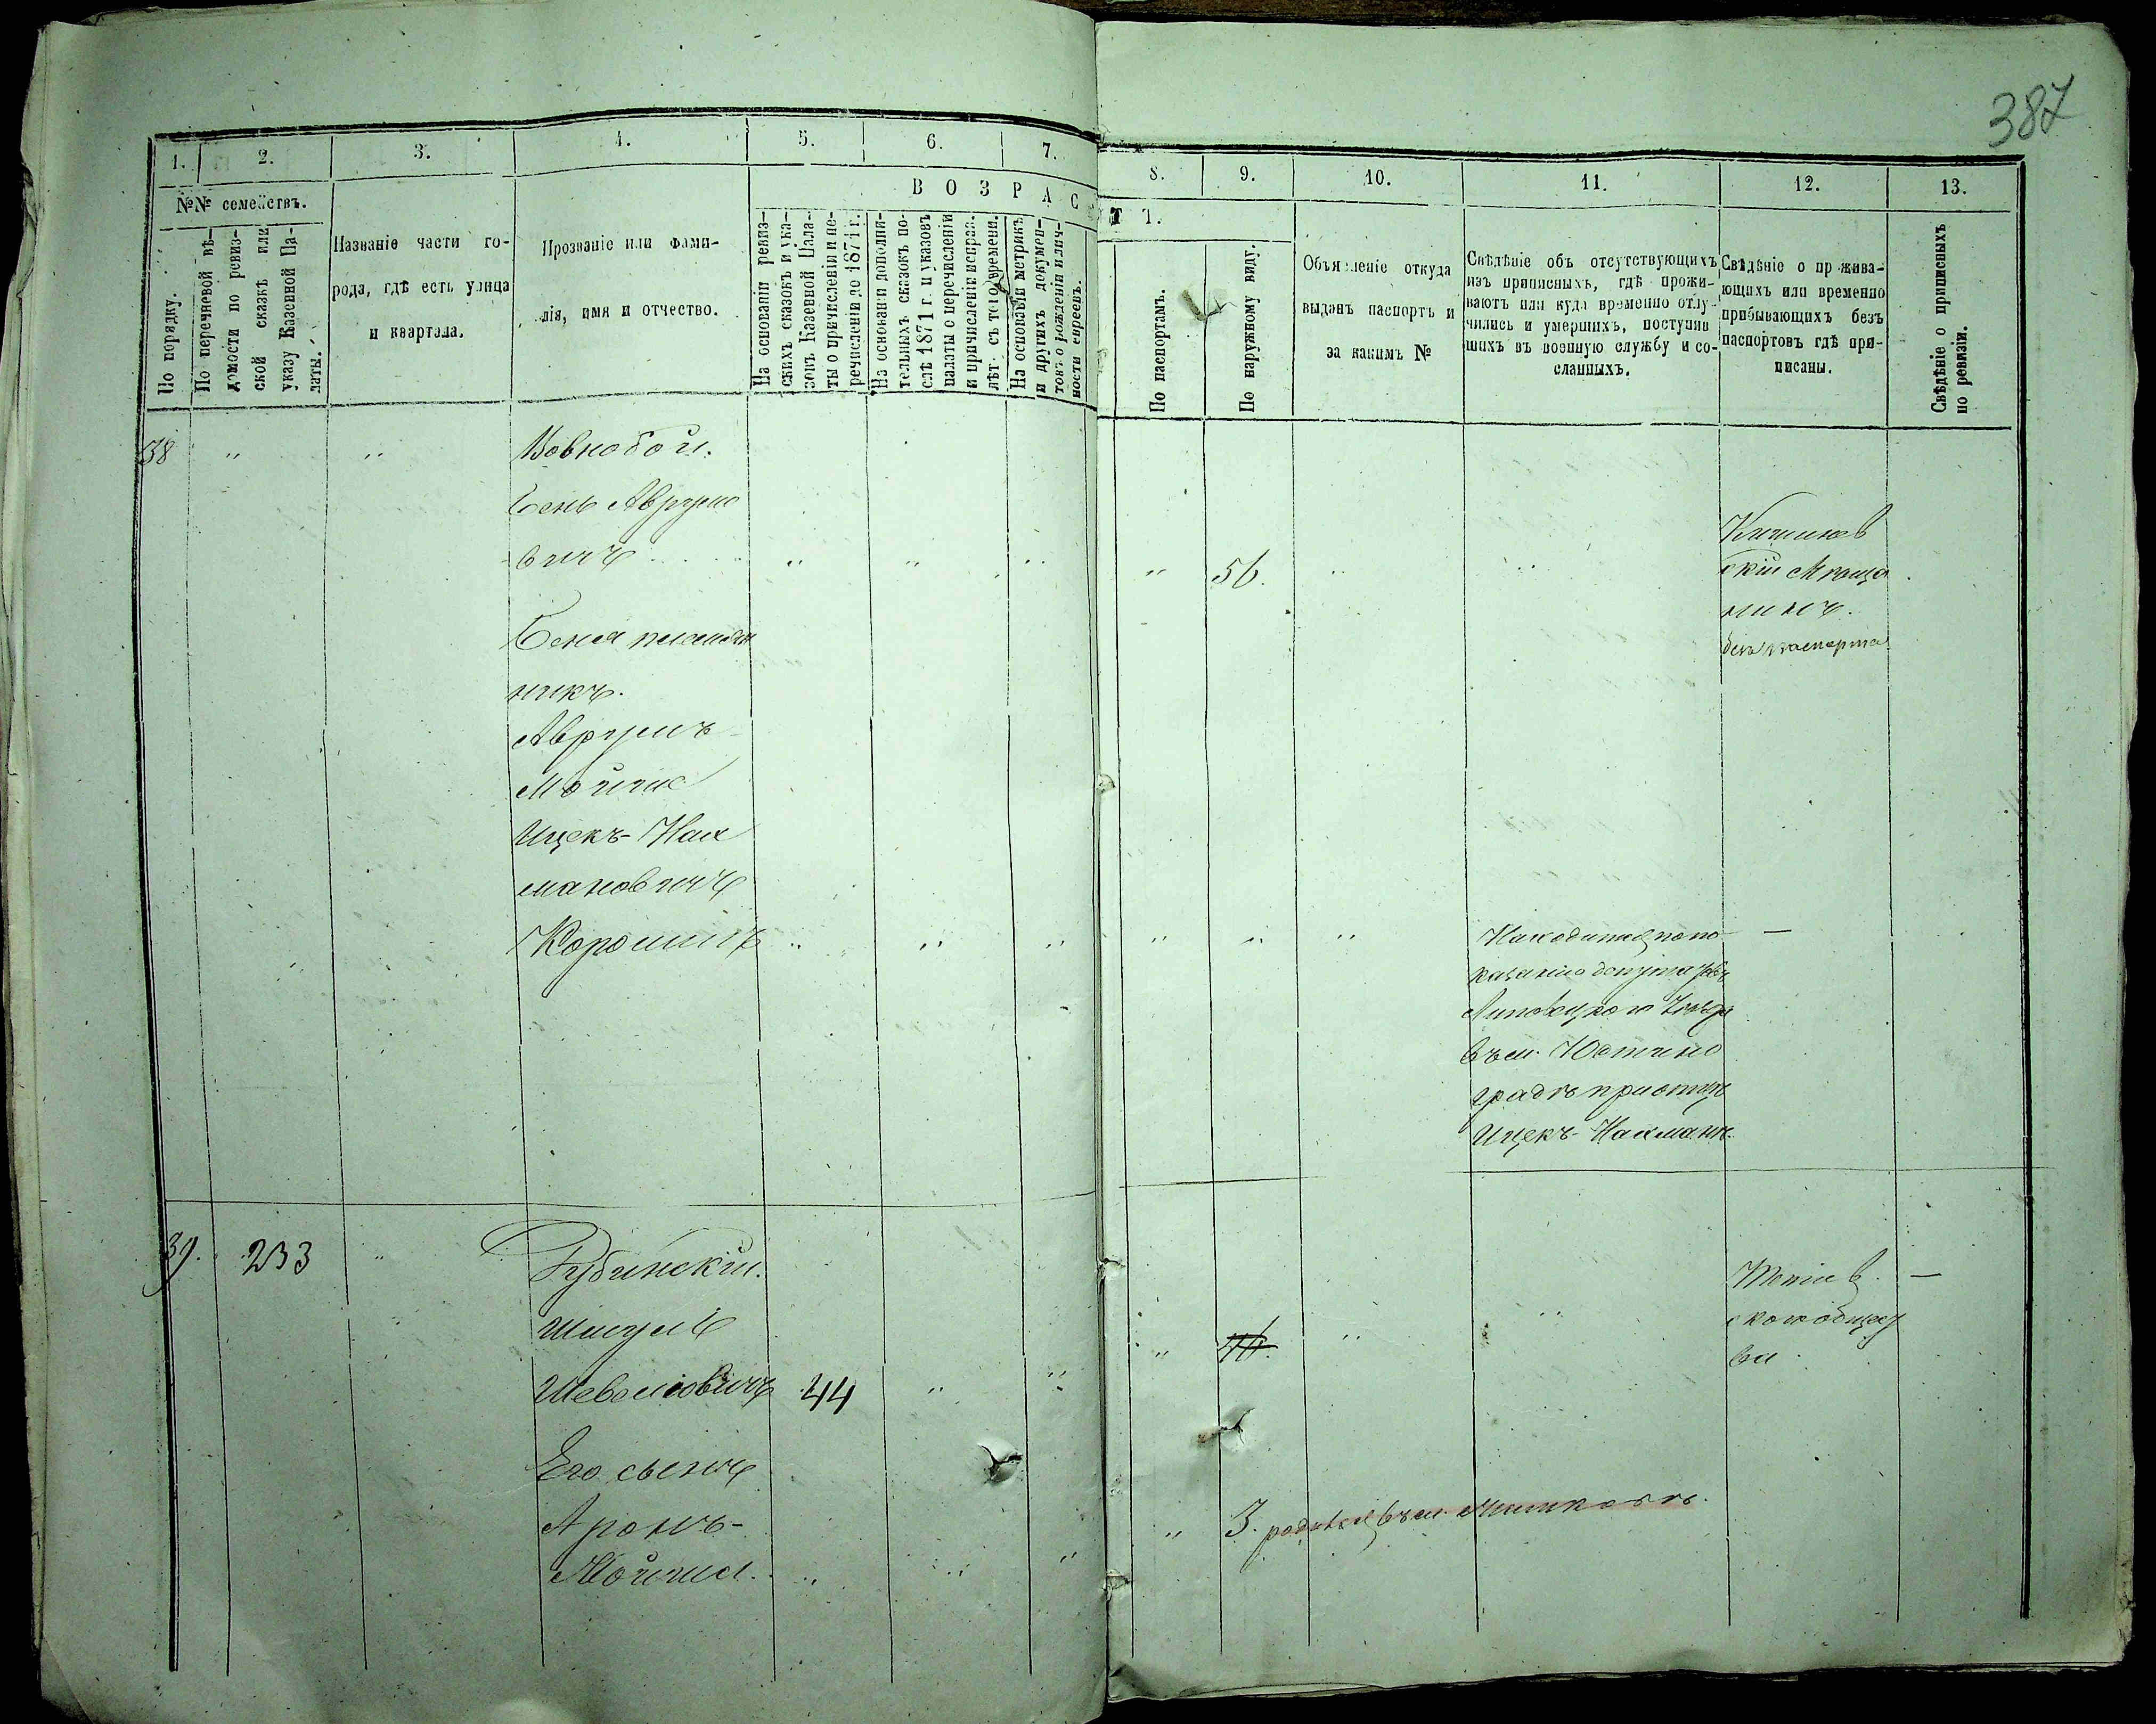 387
1. 2. 3. 4. 5. 6. 7.
8. 9. 10. 11. 12. 13.
№№ семействъ.
ВОЗРАС
Т Ъ.
По порядку.
По перечневой вѣ-
домости по ревиз-
ской сказкѣ или
указу Казенной Па-
латы.
Названіе части го-
рода, гдѣ есть улица
и квартала.
Прозваніе или фами-
лія, имя и отчество.
На основаніи ревиз-
скихъ сказокъ и ука-
зовъ Казенной Пала-
ты о причисленіи и пе-
речисленіи до 1871 г.
На основаніи дополни-
тельныхъ сказокъ по-
слѣ 1871 г. и указовъ
палаты о перечисленіи
и причисленіи исправ.
лѣт. съ того времени.
На основаніи метрикъ
и другихъ докумен-
товъ о рожденіи и лич-
ности евреевъ.
По паспортамъ.
По наружному виду.
Объявленіе откуда
выданъ паспортъ и
за какимъ №
Свѣдѣніе объ отсутствующихъ
изъ приписныхъ, гдѣ прожи-
ваютъ или куда временно отлу-
чились и умершихъ, поступив
шихъ въ военную службу и со-
сланныхъ.
Свѣдѣніе о прожива-
ющихъ или временно
прибывающихъ безъ
паспортовъ гдѣ при-
писаны.
Свѣдѣніе о приписныхъ
по ревизіи.
38 " " Вовнобой.
Бень Аврумо
вичъ " " " " 56. " "
Кишинев
скій Мѣща
нинъ.
безъ паспорта
Беня племян
никъ.
Аврумъ-
Мойша
Ицекъ-Нах
мановичъ
Корошинъ " " " " " "
Находится по по
казанію депутатовъ
Липовецкого Уѣзда
въ м. Юстино
градѣ при отцѣ
Ицекъ-Нахманъ.
—
39. 233 " Рубинскій.
Шмуль
Шевелiовичъ 44 " " " 46. " "
Тетіев
ского общест
ва
—
Его сынъ
Аронъ-
Мойша. " " " " 3. родился въ м.